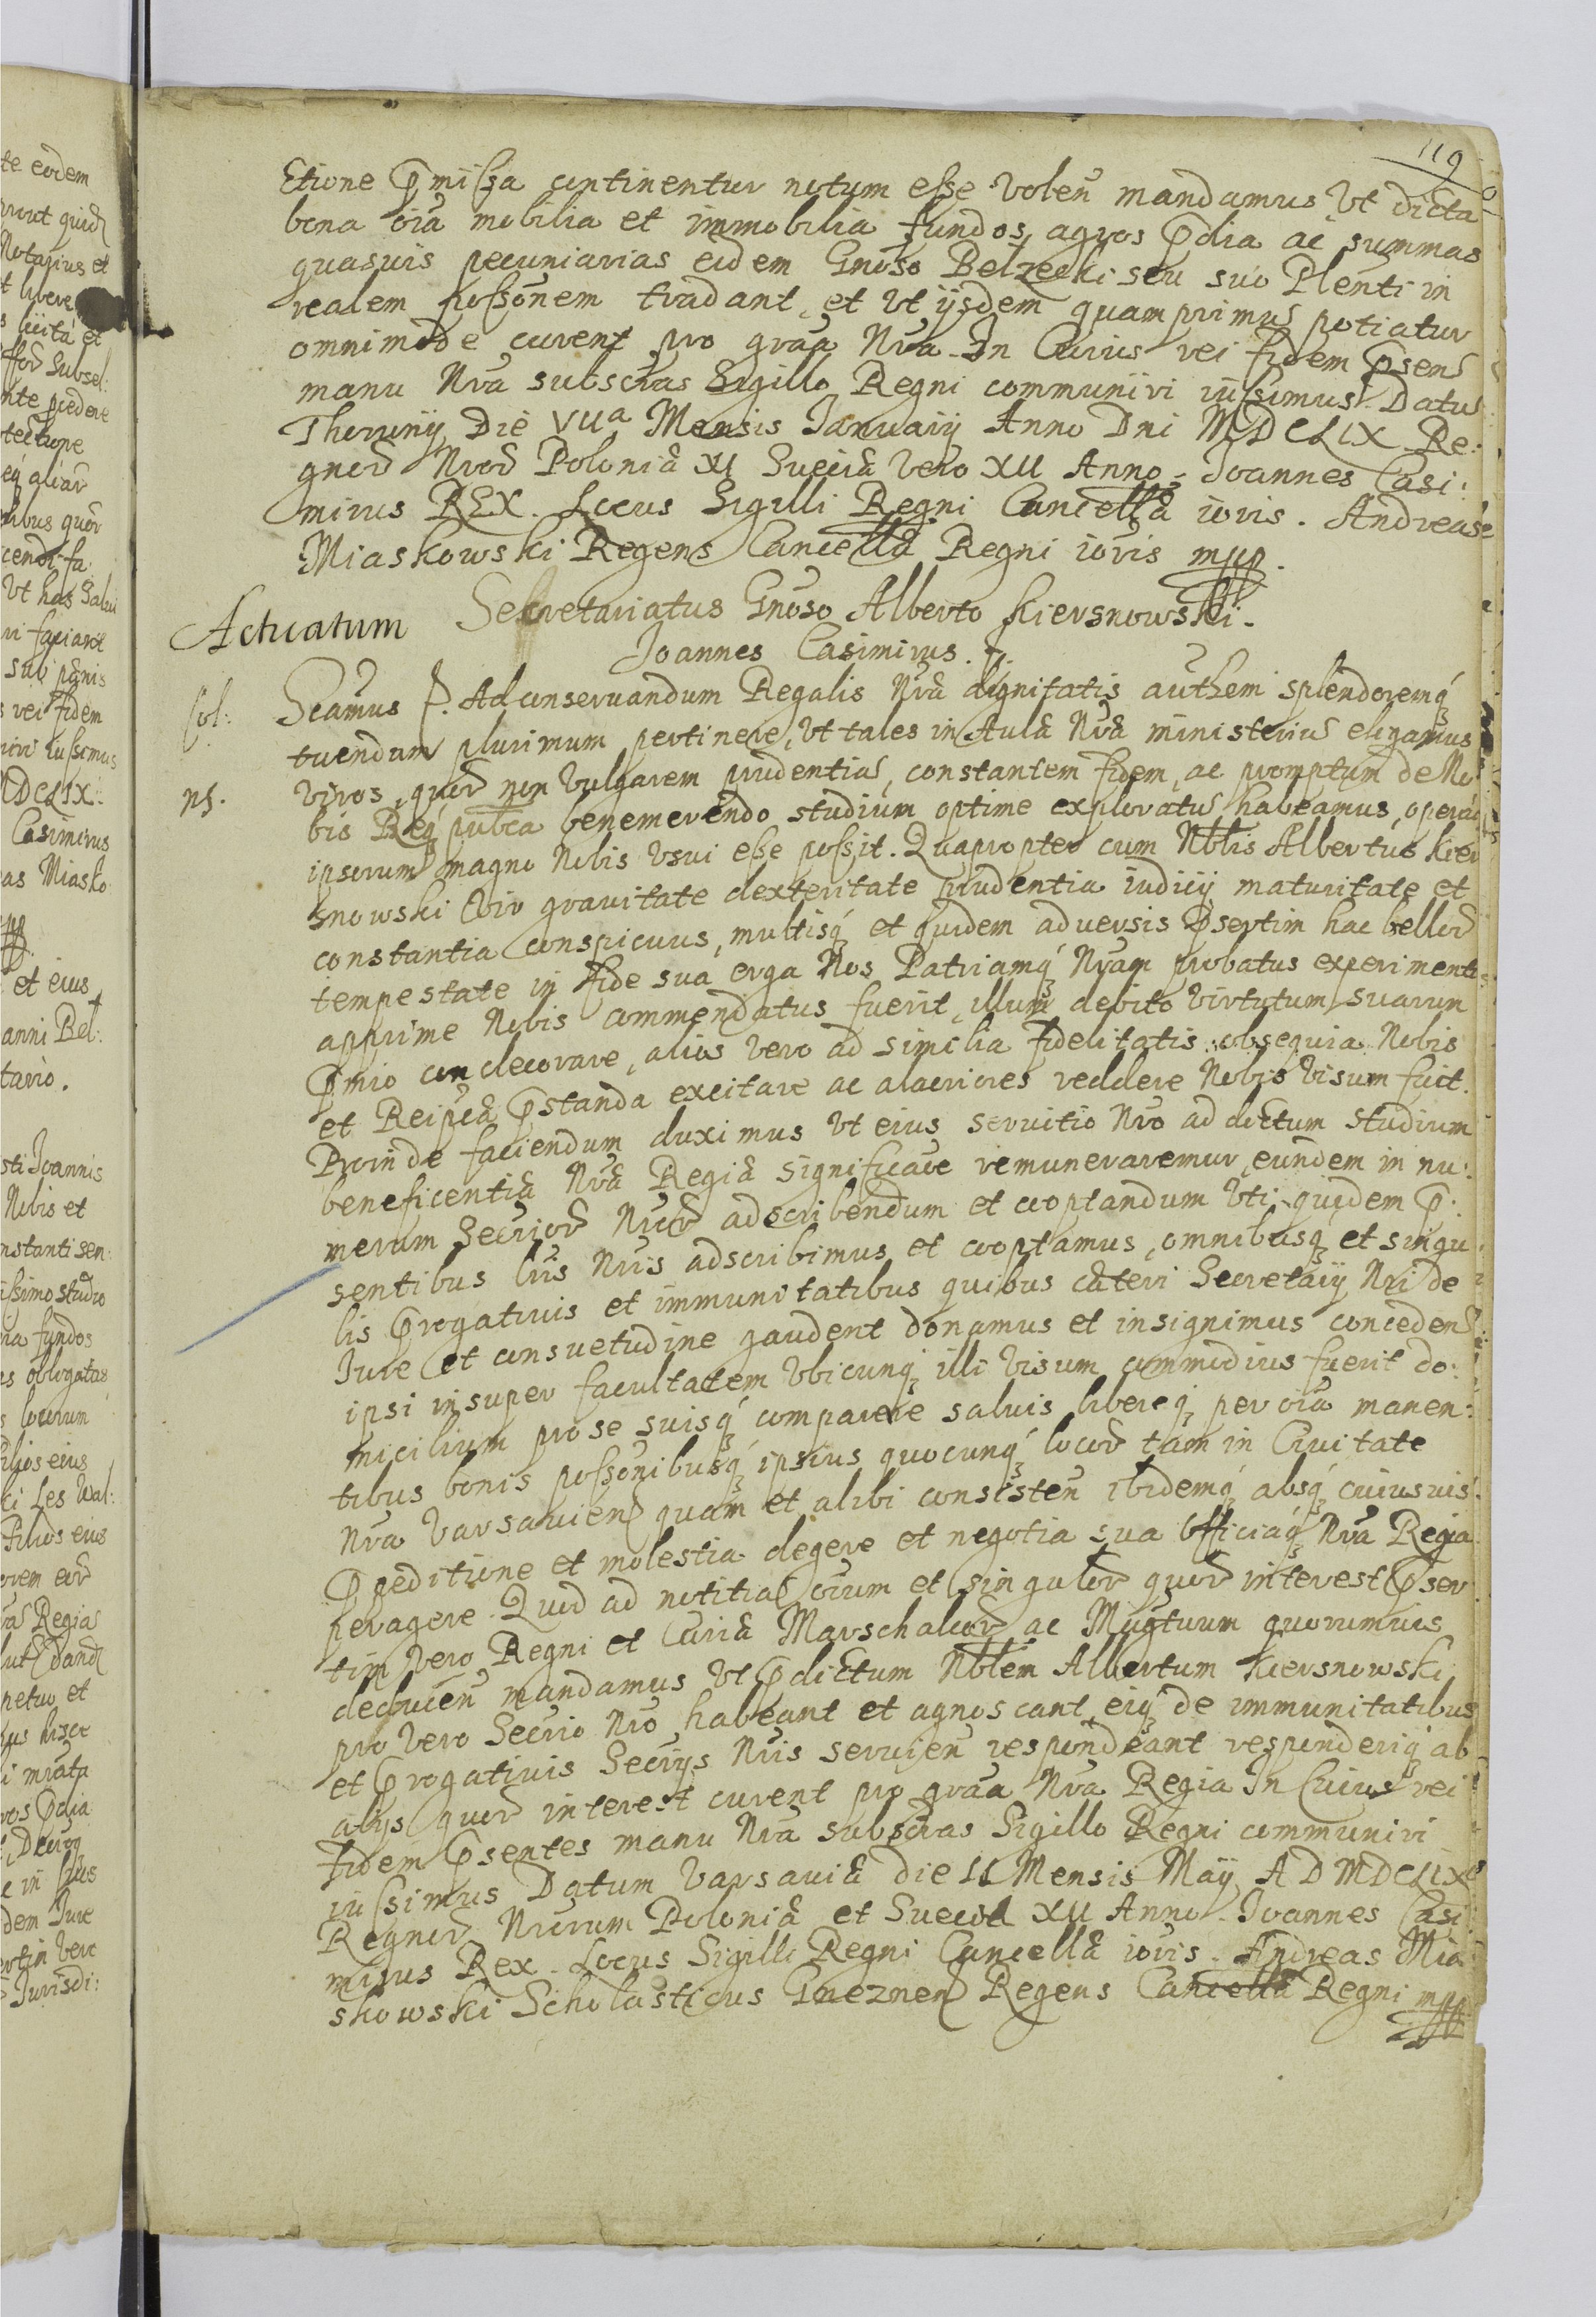 119
ctione p̱missa continentur notum esse volen̄ mandamus, Vt dicta
bona oīa mobilia et immobilia fundos, agros p̱dia ac summas
quasuis pecuniarias eidem Gnōso Belzecki seu suo Plenti in
realem possonem tradant, et Vt ijsdem quam primuḿ potiatur
omnimode curent pro graā Nra. In Cuius rei fidem p̱sens
manu Nra subscras Sigillo Regni communiri iussimus. Datu
Thorunij Die VIIa Mensis Januarij Anno Dni MDCLIX Re:
gnor Nror Poloniæ XI Sueciæ vero XII Anno. Joannes Casi:
mirus REX. Locus Sigilli Regni Cancellæ ioris. Andreas
Miaskowski Regens Cancellæ Regni ioris mpp.
Actuatum
Secretariatus Gnoso Alberto Kiersnowski.
Joannes Casimirus.
Sol:
Scamus p. Ad conseruandum Regalis Nræ dignitatis authem splendoremq́
tuendum plurimum pertinere, Vt tales in Aula Nra ministeriū eligamus
ns.
viros, quor non vulgarem prudentiā, constantem fidem, ac promptum de No
bis Req́ publca benemerendo studium optime exploratū habeamus, operáq
ipsorum magno Nobis vsui esse possit. Quapropter cum Nblis Albertus Kier
snowski Vir grauitate dexteritate prudentia iudicij maturitate et
constantia conspicuus, multisq́ et quidem aduersis p̱sertim hac bellor
tempestate in fide sua erga Nos Patriamq́ Nram probatus experimentis
apprime Nobis commendatus fuerit, illum debito virtutum suarum
p̱mio condecorare, alios vero ad similia fidelitatis obsequia Nobis
et Reipcæ p̱standa excitare ac alacriores reddere Nobis Visum fuit.
Proinde faciendum duximus Vt eius seruitio Nro addictum studium
beneficentia Nra Regia significare remuneraremur, eundem in nu:
merum Secrior Nror adscribendum et cooptandum Vti quidem p̱:
sentibus lris Nris adscribimus et cooptamus, omnibusq́ et singu
lis p̱rogatiuis et immunitatibus quibus cæteri Secretarij Nri de
Jure et consuetudine gaudent donamus et insignimus concedens
ipsi insuper facultatem Vbicunq́ illi visum commodius fuerit do:
micilium pro se suisq́ comparare saluis libereq́ per oīa manen:
tibus bonis possonibusq́ ipsius quocunq́ locor tam in Ciuitate
Nra Varsauien quam et alibi consisten̄ ibidemq́ absq́ cuiusuis
p̱peditione et molestia degere et negotia sua officiaq́ Nra Regia
peragere. Quod ad notitiā oīum et singulor quor interest p̱ser
tim vero Regni et Curiæ Marschalcor ac Mūgtuum quorumuis
deducen̄ mandamus Vt p̱dictum Nblem Albertum Kiersnowski
pro vero Secrio Nro habeant et agnoscant eiq́ de immunitatibus
et p̱rogatiuis Secrijs Nris seruien̄ respondeant responderiq́ ab
alijs quor interest curent pro graa Nra Regia In Cuius rei
fidem p̱sentes manu Nra subscras Sigillo Regni communiri
iussimus Datum Varsauiæ die II Mensis Maij A D MDCLIXo
Regnor Nrorum Poloniæ et Sueciæ XII Anno. Joannes Casi
mirus Rex. Locus Sigilli Regni Cancellæ ioris. Andreas Mia
skowski Scholasticus Gneznen Regens Cancellæ Regni mpp